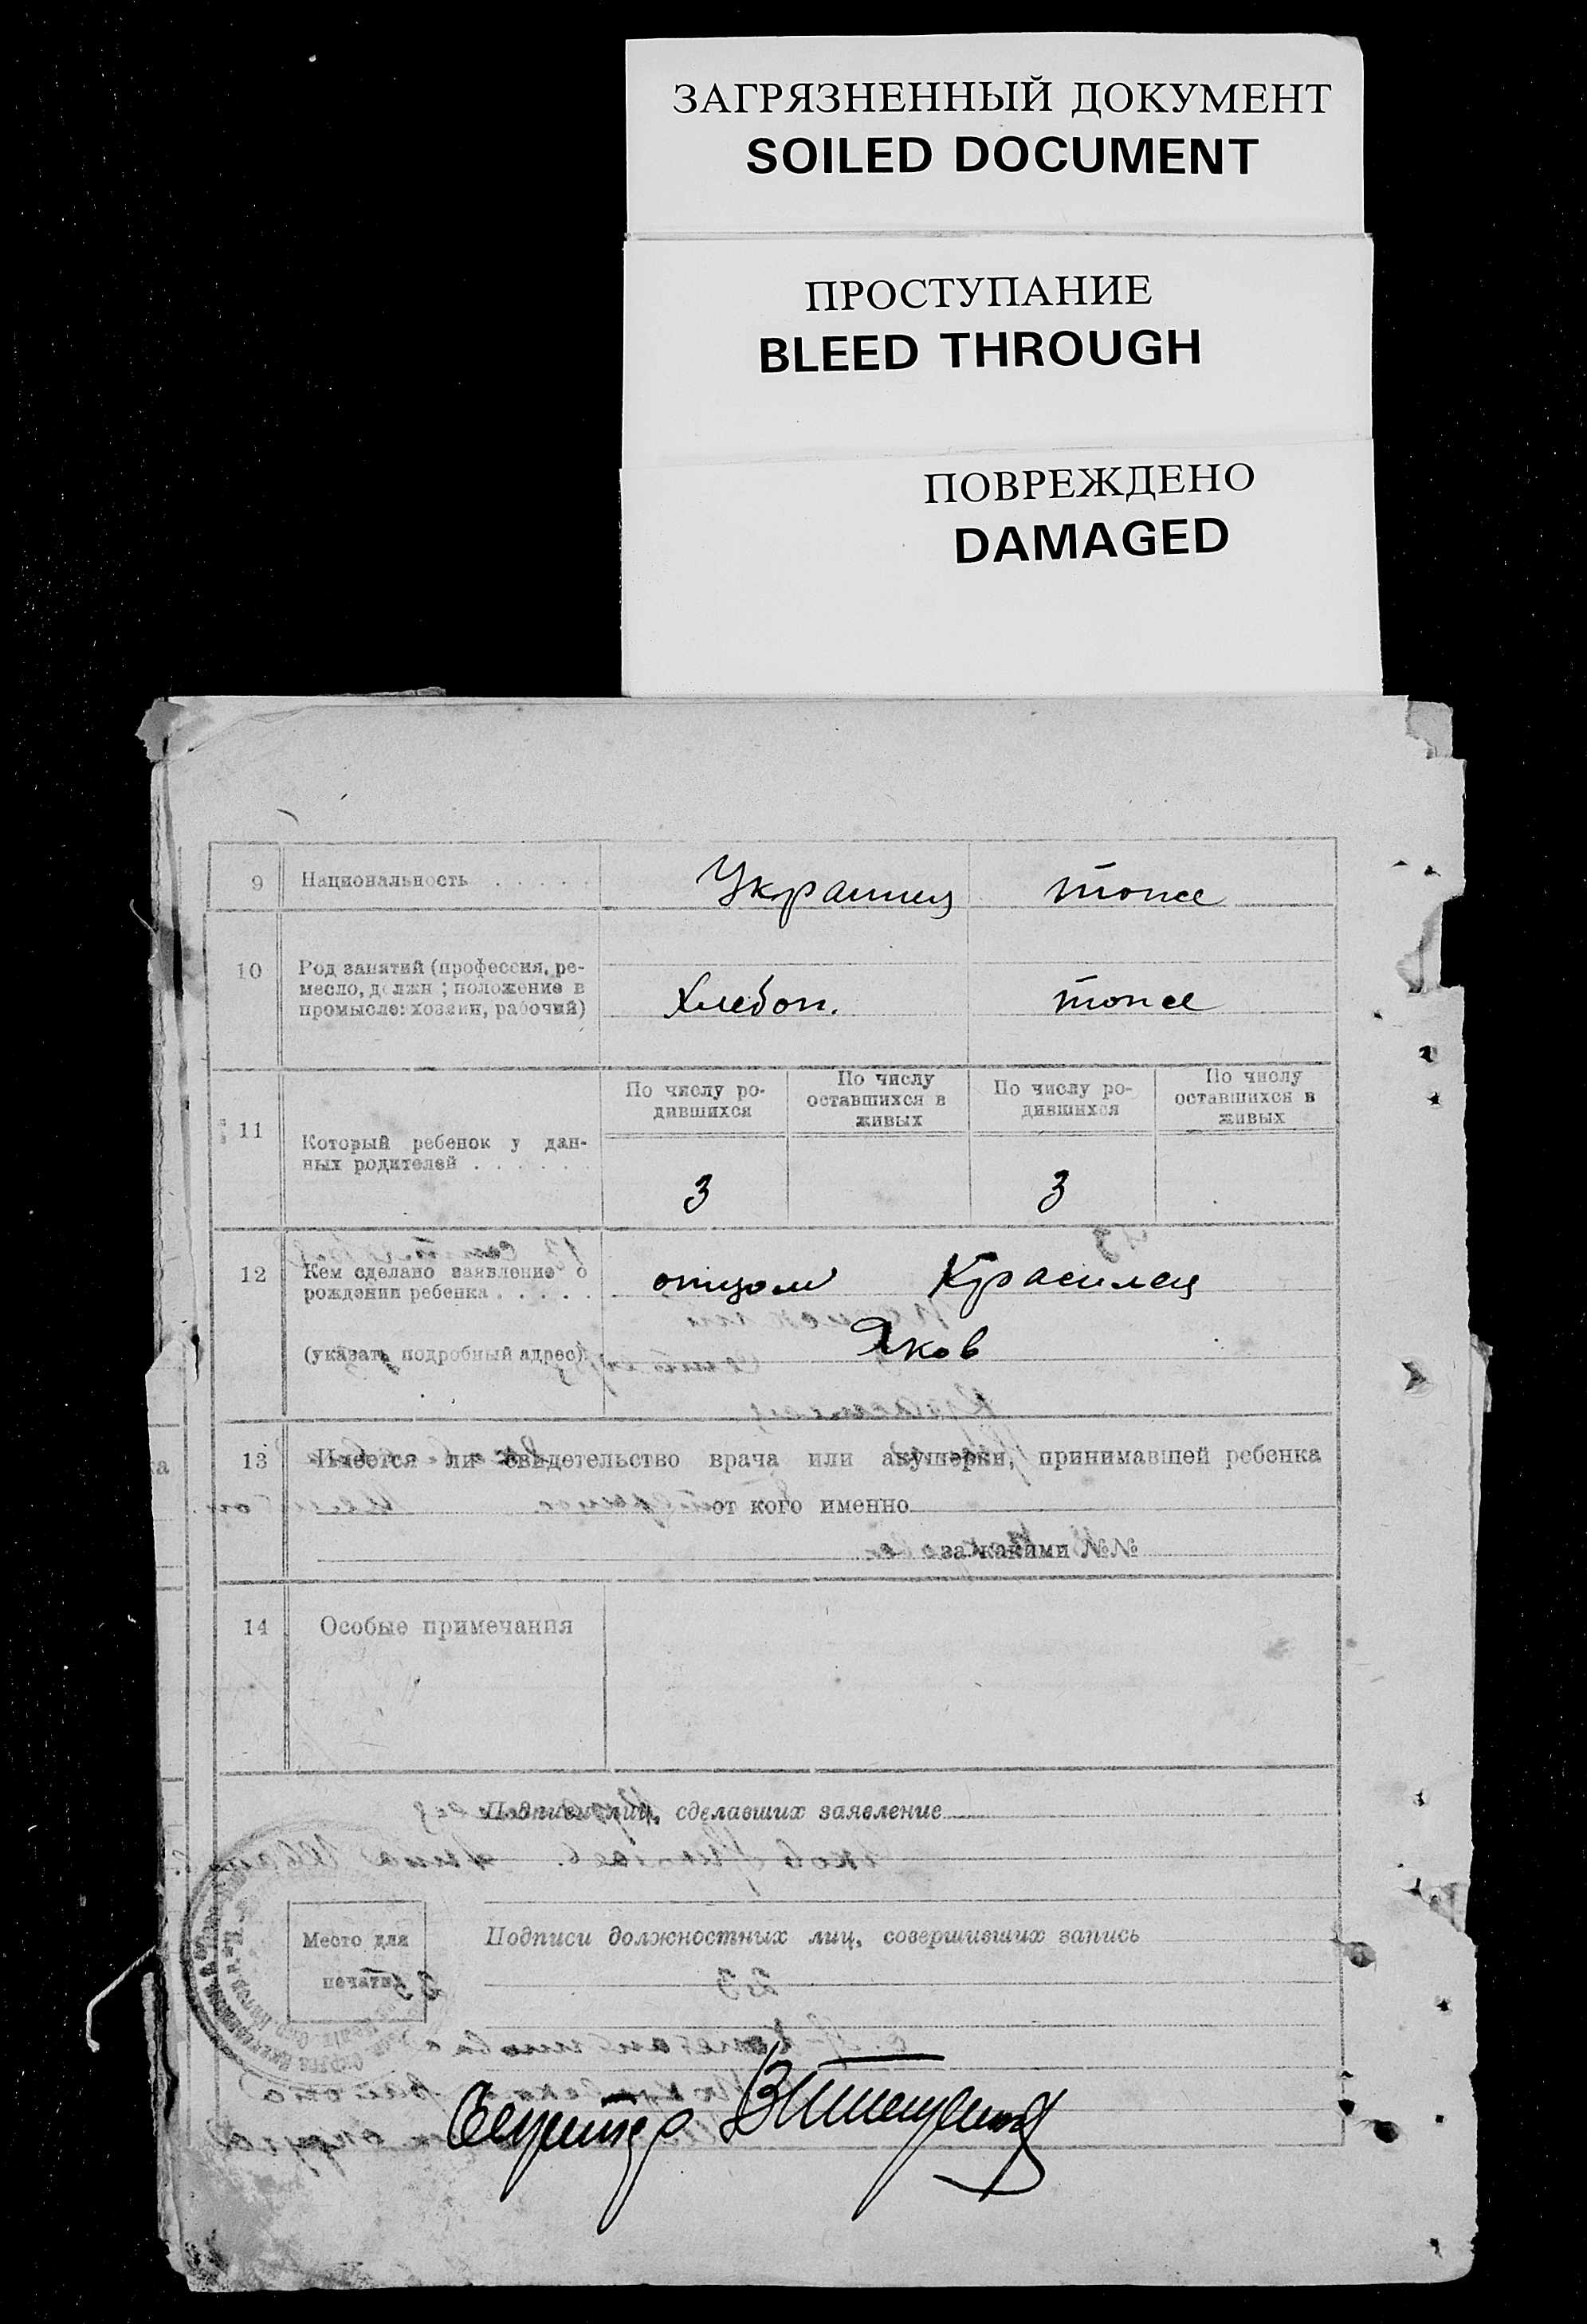 ЗАГРЯЗНЕННЫЙ ДОКУМЕНТ
SOILED DOCUMENT
ПРОСТУПАНИЕ
BLEED THROUGH
ПОВРЕЖДЕНО
DAMAGED
9 Национальность . . . . . Украинец тоже
10 Род занятий (профессия, ре-
месло, должн; положение в
промысле: хозяин, рабочий) Хлебоп. тоже
По числу ро-
дившихся
По числу
оставшихся в
живых
По числу ро-
дившихся
По числу
оставшихся в
живых
11 Который ребенок у дан-
ных родителей . . . . . . 3 3
12 Кем сделано заявление о
рождении ребенка . . . . . отцом Красилец
Яков
(указать подробный адрес)
13 Имеется ли свидетельство врача или акушерки, принимавшей ребенка
от кого именно
за какими №№
14 Особые примечания
Подписи лиц, сделавших заявление
Подписи должностных лиц, совершивших запись
Место для
печати